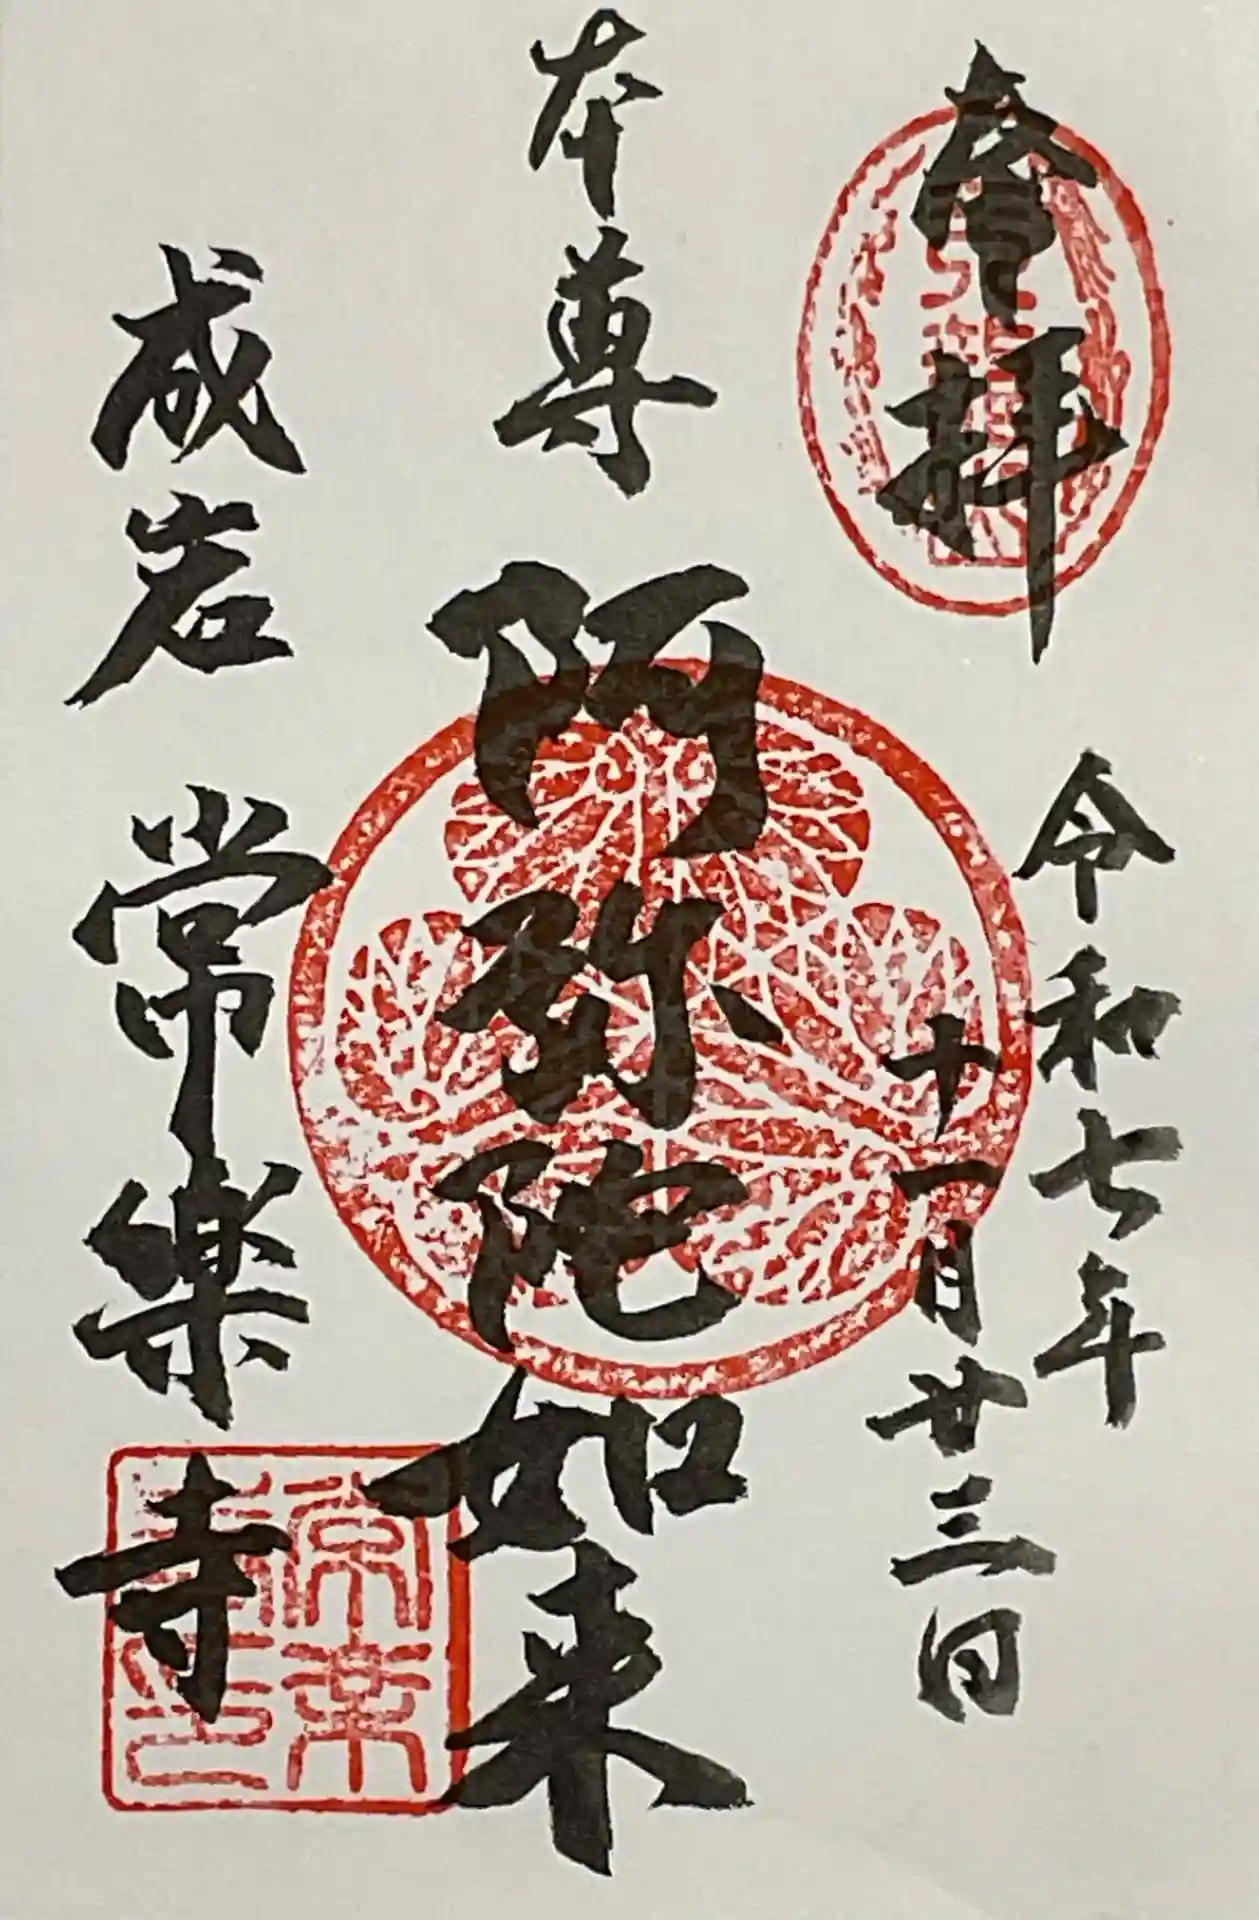 奉拝
令和七年
十一月廿三日
本尊 阿弥陀如来
成岩 常樂寺